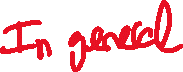 In general